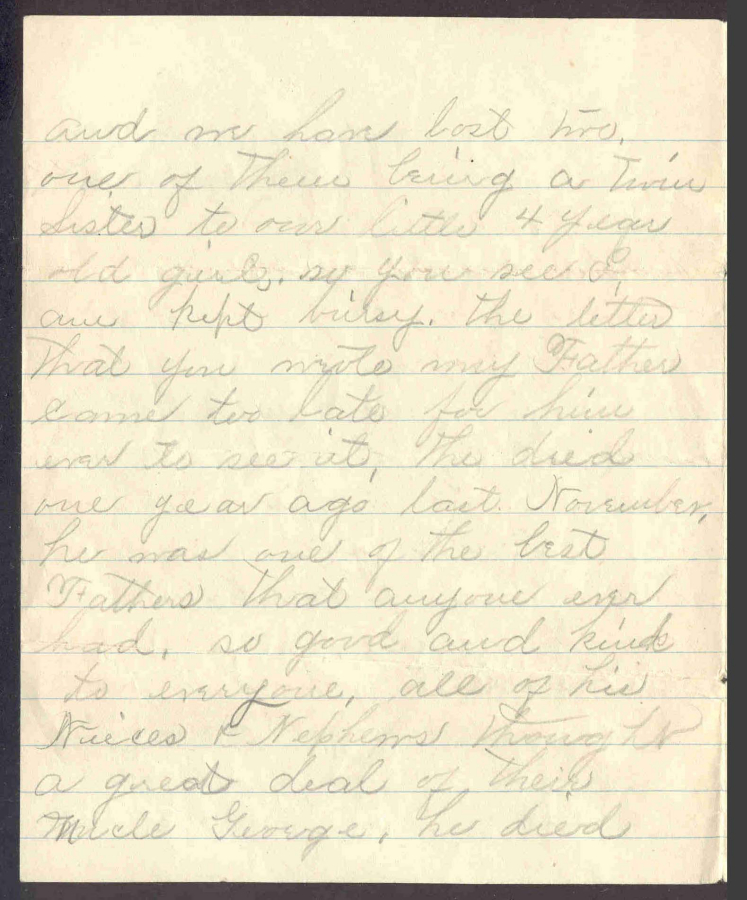 and we have lost two,
one of them being a Twin
Sister to our little 4 year
old girl, so you see I
am kept buisy. the letter
that you wrote my Father
came too late for him
ever to see it, he died
one year ago last November,
he was one of the best
Fathers that anyone ever
had, so good and kind
to everyone, all of his
Nieces & Nephews thought
a great deal of their
Uncle George, he died